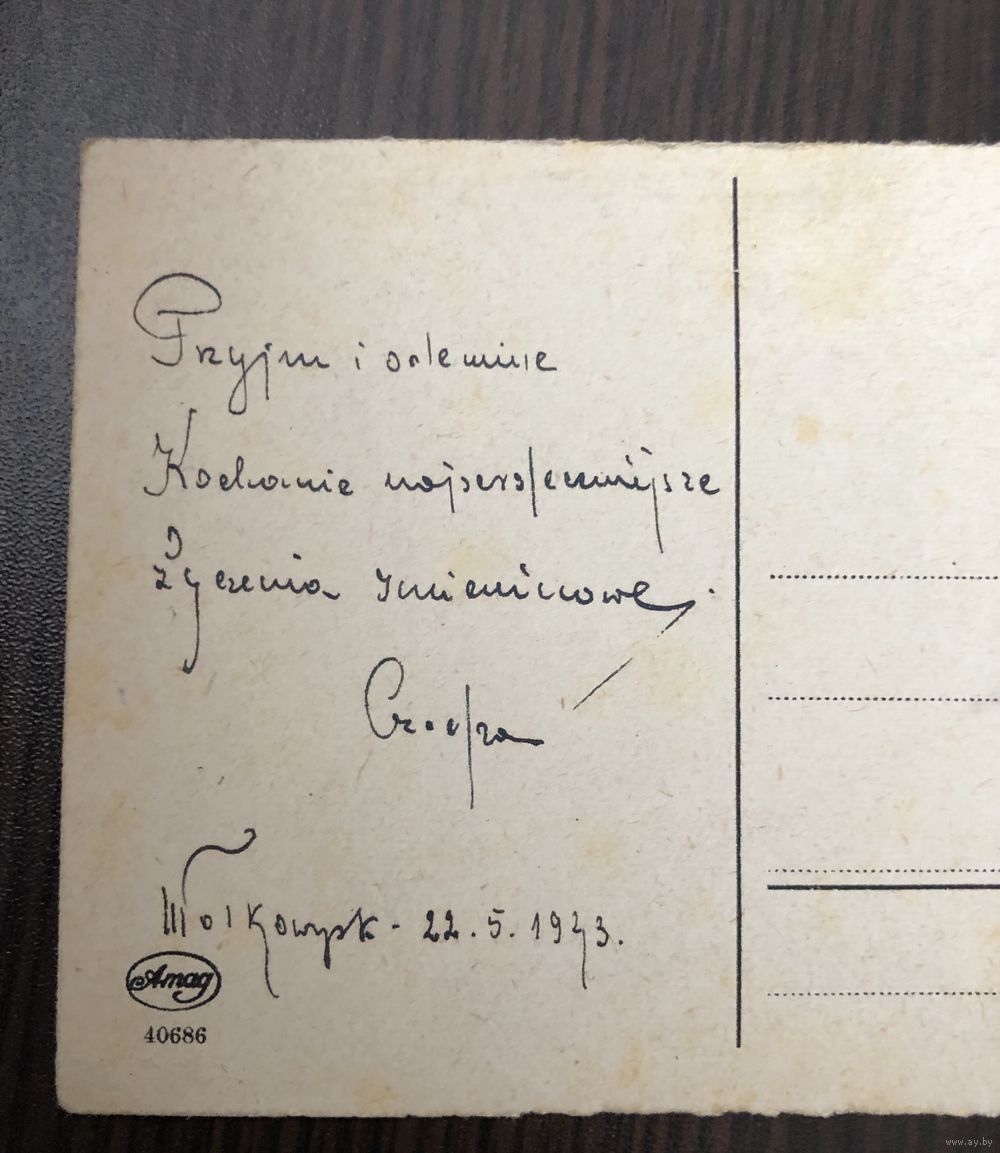 Przyjm i odemnie
Kochanie najserdeczniejsze
Życzenia Imieninowe.
Wołkowysk - 22.5.1943.
Amag
40686
www.ay.by